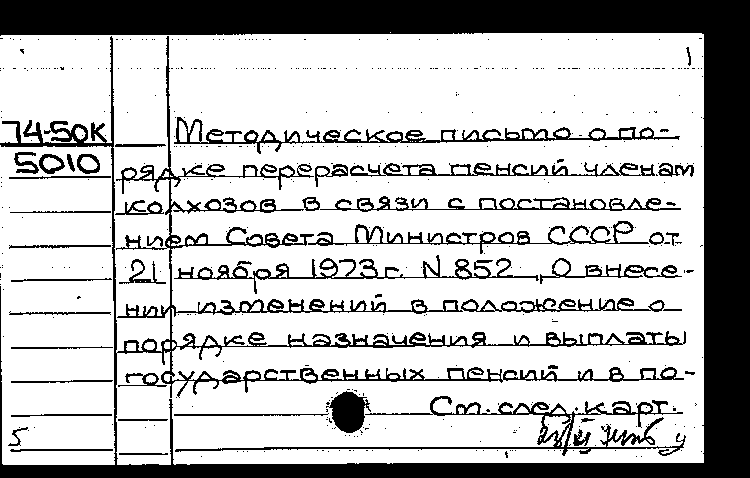 1
74-50К Методическое письмо о по-
5010 рядке перерасчета пенсий членам
колхозов в связи с постановле-
нием Совета Министров СССР от
21 ноября 1973 г. N 852 „О внесе-
нии изменений в положение о
порядке назначения и выплаты
государственных пенсий и в по-
См. след. карт.
5